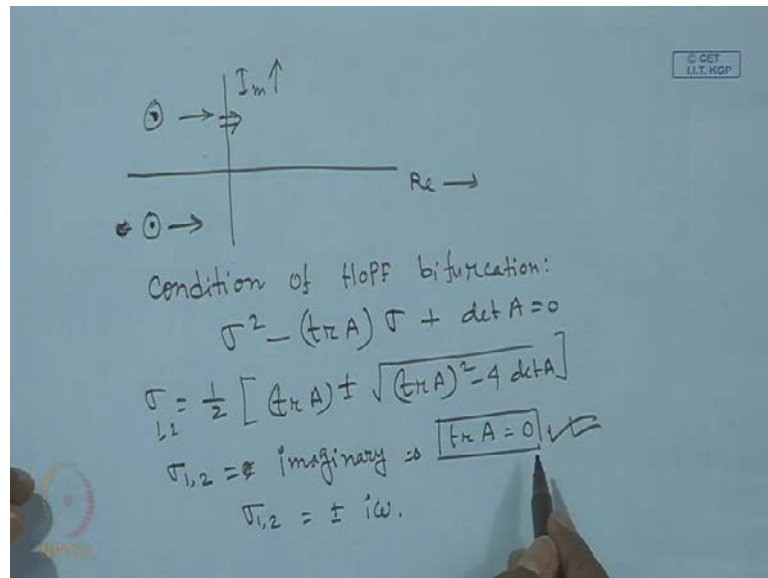 © CET
I.I.T. KGP
Im ↑
Re →
Condition of HOPF bifurcation:
σ² – (tr A) σ + det A = 0
σ₁,₂ = ½ [ (tr A) ± √((tr A)² – 4 det A) ]
σ₁,₂ = imaginary ⇒ tr A = 0
σ₁,₂ = ± iω.
NPTEL